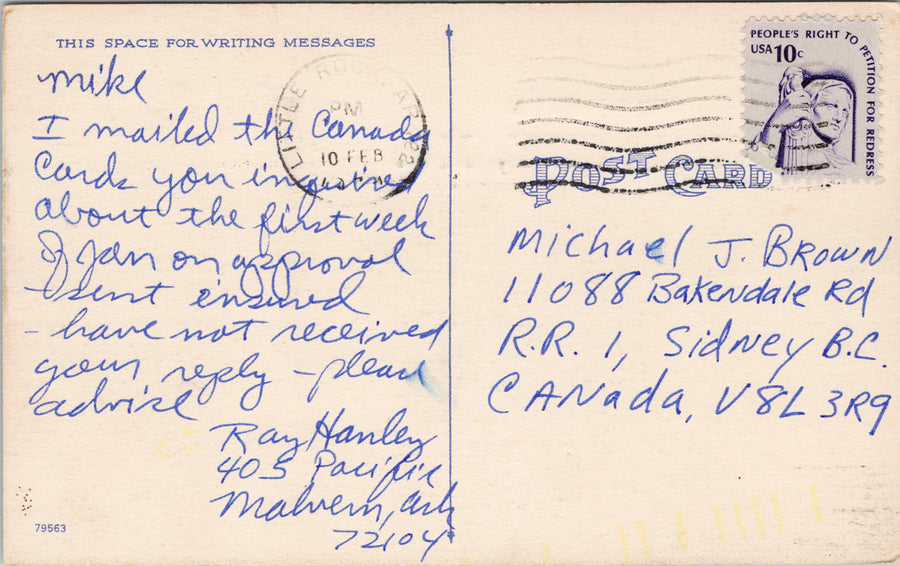 THIS SPACE FOR WRITING MESSAGES
Mike
I mailed the Canada
Cards you inquired
about the first week
of Jan on approval
- sent insured
- have not received
your reply - please
advise
Ray Hanley
405 Pacific
Malvern, Ark
72104
79563
LITTLE ROCK, AR 722
PM
10 FEB
PEOPLE'S RIGHT TO PETITION FOR REDRESS
USA 10c
POST CARD
Michael J. Brown
11088 Bakendale Rd
R.R. 1, Sidney B.C.
CANADA, V8L 3R9